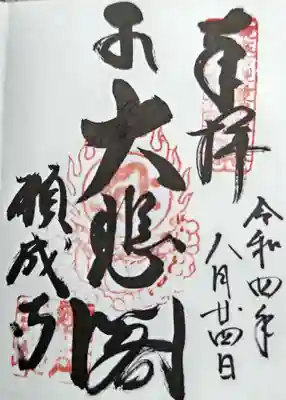 奉拝
令和四年
八月廿四日
大悲閣
願成寺